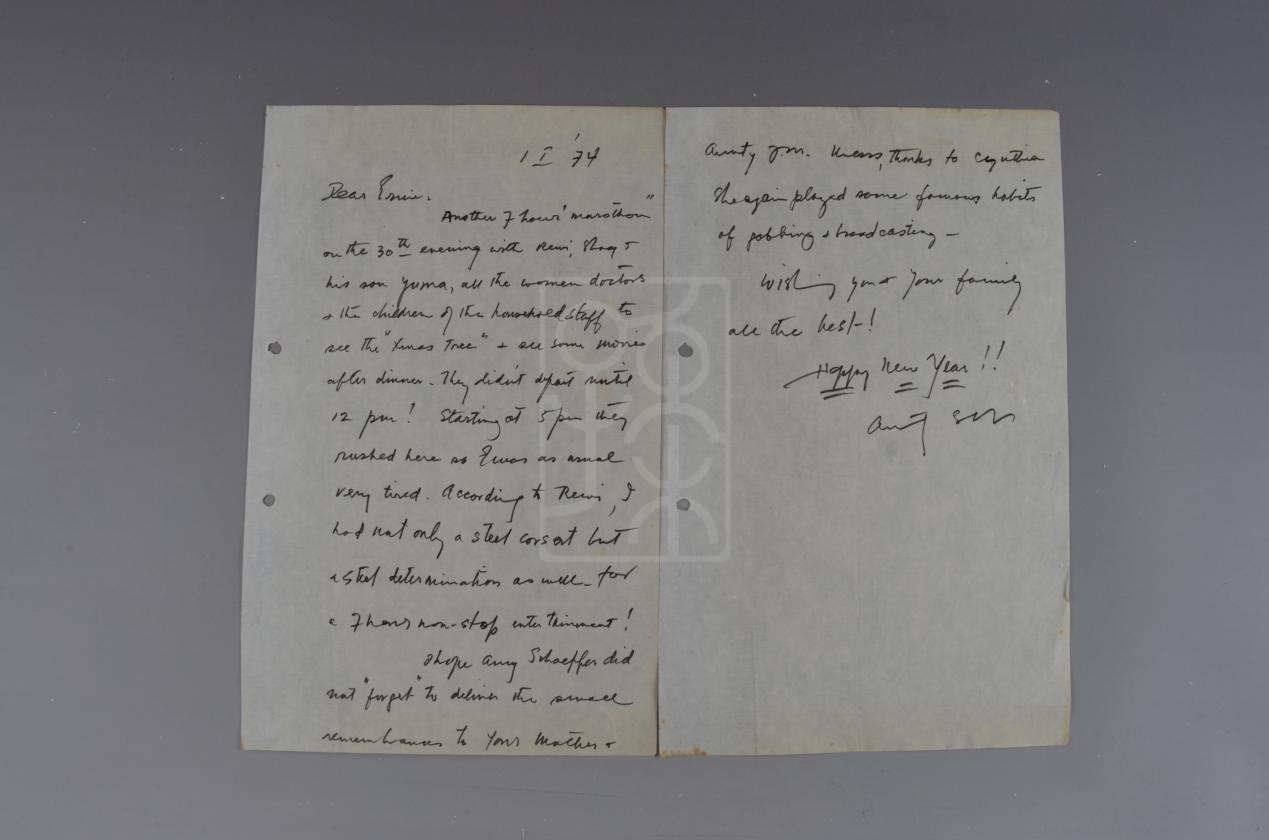 1 I '74
Dear Ernie.
Another 7 hours' marathon"
on the 30th evening with Rewi, Shag +
his son Yuma, all the women doctors
+ the children of the household staff to
see the "Xmas Tree" + see some movies
after dinner - They didn't depart until
12 pm! Starting at 5 pm they
rushed here so I was as usual
very tired. According to Rewi, I
had not only a steel corset but
a steel determination as well - for
a 7 hours non-stop entertainment!
I hope Amy Schaeffer did
not "forget" to deliver the small
remembrances to your Mother +
Aunty y.m. thanks to Cynthia
She again played some famous habits
of gabbing + broadcasting -
Wishing you + your family
all the best!
Happy New Year!!
Aunty SCL